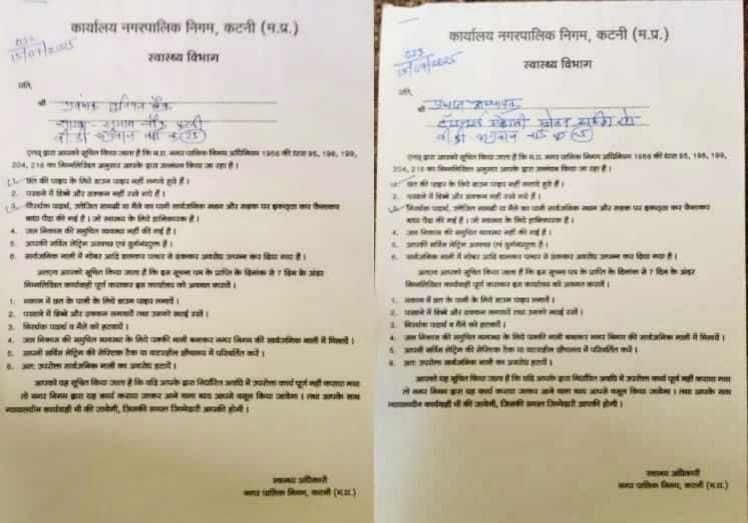 कार्यालय नगरपालिक निगम, कटनी (म.प्र.)
स्वास्थ्य विभाग
15/07/2025
प्रति,
श्री
एतद् द्वारा आपको सूचित किया जाता है कि म.प्र. नगर पालिक निगम अधिनियम 1956 की धारा 95, 196, 199,
204, 216 का निम्नलिखित अनुसार आपके द्वारा उल्लंघन किया जा रहा है।
1. छत की पाइप के लिये डाउन पाइप नहीं लगाये हुये हैं।
2. पखाने में डिब्बे और ढक्कन नहीं रखे गये हैं।
3. निरर्थक पदार्थ, उत्तेजित सामग्री या मैले का पानी सार्वजनिक स्थान और सड़क पर इकट्ठा कर फैलाकर
बाधा पैदा की गई है। जो स्वास्थ्य के लिये हानिकारक है।
4. जल निकास की समुचित व्यवस्था नहीं की गई है।
5. आपकी सर्विस लेट्रिन अस्वच्छ एवं दुर्गन्धयुक्त है।
6. सार्वजनिक नाली में गोबर आदि डालकर पत्थर से ढककर अवरोध उत्पन्न कर दिया गया है।
अतएव आपको सूचित किया जाता है कि इस सूचना पत्र के प्राप्ति के दिनांक से 7 दिन के अंदर
निम्नलिखित कार्यवाही पूर्ण कराकर इस कार्यालय को अवगत करावें।
1. मकान में छत के पानी के लिये डाउन पाइप लगावें।
2. पखाने में डिब्बे और ढक्कन लगावें तथा उनको सफाई रखें।
3. निरर्थक पदार्थ व मैले को हटावें।
4. जल निकास की समुचित व्यवस्था के लिये पक्की नाली बनाकर नगर निगम की सार्वजनिक नाली में मिलावें।
5. अपनी सर्विस लेट्रिन की सेप्टिक टैंक या वाटरसील शौचालय में परिवर्तित करें।
6. अतः उपरोक्त सार्वजनिक नाली का अवरोध हटावें।
आपको यह सूचित किया जाता है कि यदि आपके द्वारा निर्धारित अवधि में उपरोक्त कार्य पूर्ण नहीं कराया गया
तो नगर निगम द्वारा यह कार्य कराया जाकर आने वाला व्यय आपसे वसूल किया जावेगा। तथा आपके साथ
न्यायालयीन कार्यवाही भी की जावेगी, जिसकी समस्त जिम्मेदारी आपकी होगी।
स्वास्थ्य अधिकारी
नगर पालिक निगम, कटनी (म.प्र.)
कार्यालय नगरपालिक निगम, कटनी (म.प्र.)
स्वास्थ्य विभाग
15/07/2025
प्रति,
श्री
एतद् द्वारा आपको सूचित किया जाता है कि म.प्र. नगर पालिक निगम अधिनियम 1956 की धारा 95, 196, 199,
204, 216 का निम्नलिखित अनुसार आपके द्वारा उल्लंघन किया जा रहा है।
1. छत की पाइप के लिये डाउन पाइप नहीं लगाये हुये हैं।
2. पखाने में डिब्बे और ढक्कन नहीं रखे गये हैं।
3. निरर्थक पदार्थ, उत्तेजित सामग्री या मैले का पानी सार्वजनिक स्थान और सड़क पर इकट्ठा कर फैलाकर
बाधा पैदा की गई है। जो स्वास्थ्य के लिये हानिकारक है।
4. जल निकास की समुचित व्यवस्था नहीं की गई है।
5. आपकी सर्विस लेट्रिन अस्वच्छ एवं दुर्गन्धयुक्त है।
6. सार्वजनिक नाली में गोबर आदि डालकर पत्थर से ढककर अवरोध उत्पन्न कर दिया गया है।
अतएव आपको सूचित किया जाता है कि इस सूचना पत्र के प्राप्ति के दिनांक से 7 दिन के अंदर
निम्नलिखित कार्यवाही पूर्ण कराकर इस कार्यालय को अवगत करावें।
1. मकान में छत के पानी के लिये डाउन पाइप लगावें।
2. पखाने में डिब्बे और ढक्कन लगावें तथा उनको सफाई रखें।
3. निरर्थक पदार्थ व मैले को हटावें।
4. जल निकास की समुचित व्यवस्था के लिये पक्की नाली बनाकर नगर निगम की सार्वजनिक नाली में मिलावें।
5. अपनी सर्विस लेट्रिन की सेप्टिक टैंक या वाटरसील शौचालय में परिवर्तित करें।
6. अतः उपरोक्त सार्वजनिक नाली का अवरोध हटावें।
आपको यह सूचित किया जाता है कि यदि आपके द्वारा निर्धारित अवधि में उपरोक्त कार्य पूर्ण नहीं कराया गया
तो नगर निगम द्वारा यह कार्य कराया जाकर आने वाला व्यय आपसे वसूल किया जावेगा। तथा आपके साथ
न्यायालयीन कार्यवाही भी की जावेगी, जिसकी समस्त जिम्मेदारी आपकी होगी।
स्वास्थ्य अधिकारी
नगर पालिक निगम, कटनी (म.प्र.)